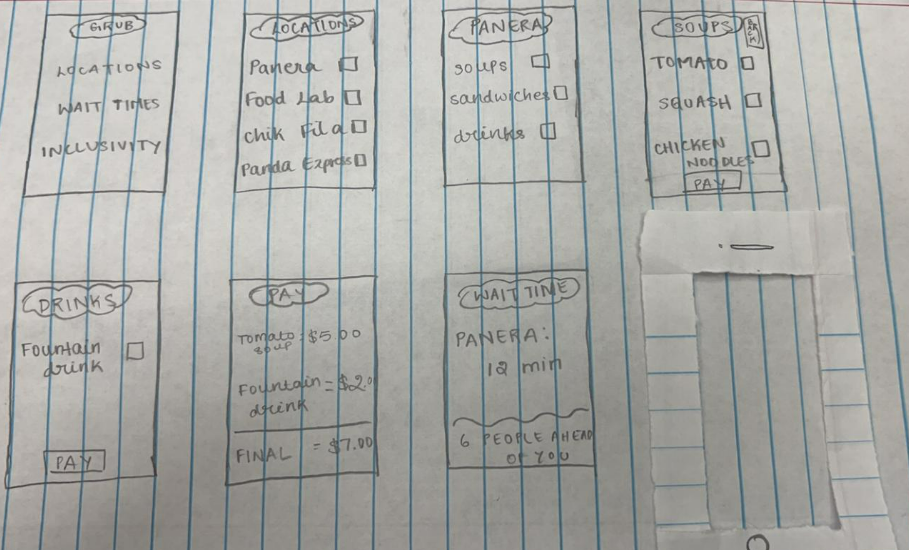 GRUB
LOCATIONS
WAIT TIMES
INCLUSIVITY
LOCATIONS
Panera
Food Lab
Chik Fil a
Panda Express
PANERA
soups
sandwiches
drinks
SOUPS
TOMATO
SQUASH
CHICKEN
NOODLES
PAY
DRINKS
Fountain
drink
PAY
PAY
Tomato = $5.00
soup
Fountain = $2.0
drink
FINAL = $7.00
WAIT TIME
PANERA:
12 min
6 PEOPLE AHEAD
OF YOU